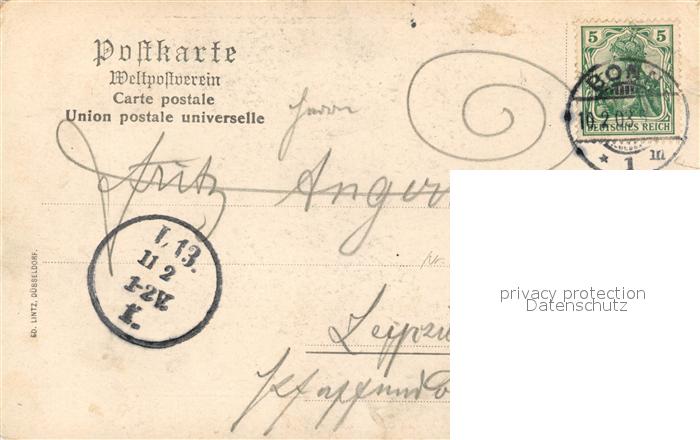 Postkarte
Weltpostverein
Carte postale
Union postale universelle
5 5
BONN
10.2.03
DEUTSCHES REICH
* 1 m
Herrn
Fritz Anger
L 13.
11 2
1-2V.
K.
ED. LINTZ, DÜSSELDORF.
privacy protection
Datenschutz
Leipzig